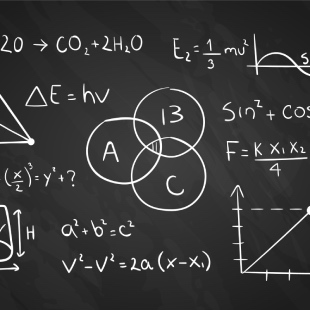 20 → CO₂+2H₂O
E₂=1/3 mv²
S
ΔE=hv
B
A
C
Sin²+Cos
F=K X₁ X₂/4
(x/2)³=y²+?
H
a²+b²=c²
V²-V²=2a(x-x₁)